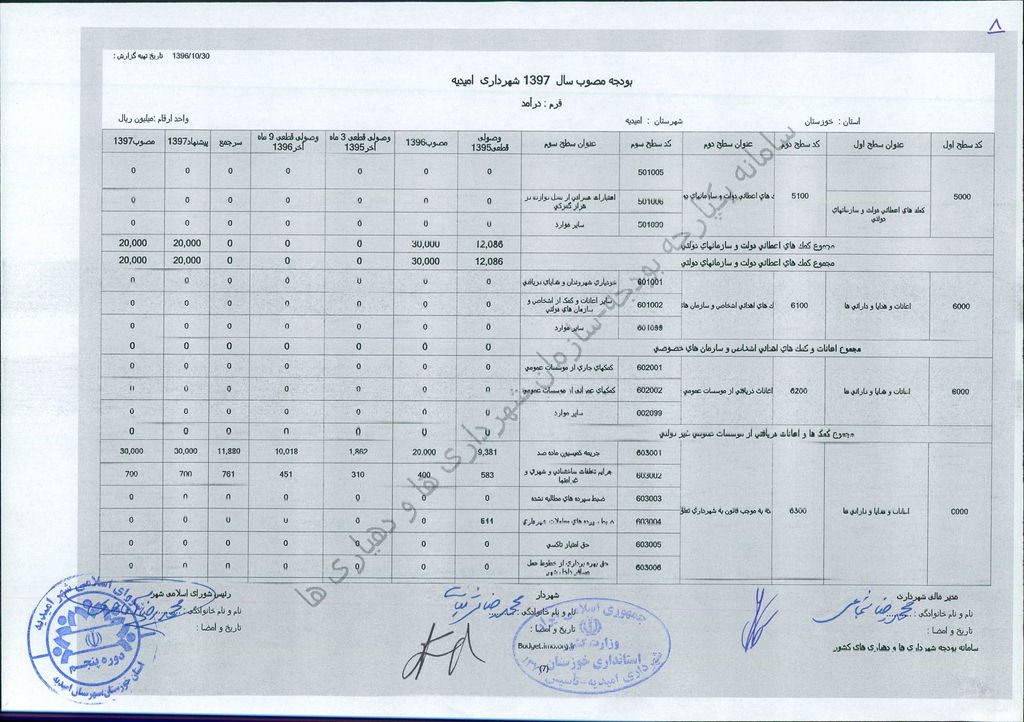 ۸
1396/10/30 تاریخ تهیه گزارش :
بودجه مصوب سال 1397 شهرداری امیدیه
فرم : درآمد
استان : خوزستان شهرستان : امیدیه واحد ارقام :میلیون ریال
کد سطح اول عنوان سطح اول کد سطح دوم عنوان سطح دوم کد سطح سوم عنوان سطح سوم وصولی قطعی1395 مصوب1396 وصولی قطعی 3 ماه آخر1395 وصولی قطعی 9 ماه آخر1396 سرجمع پیشنهاد1397 مصوب1397
501005 0 0 0 0 0 0 0
5000 کمک های اعطائی دولت و سازمانهای دولتی 5100 ک های اعطائی دولت و سازمانهای دو 501006 0 0 0 0 0 0 0
501099 سایر موارد 0 0 0 0 0 0 0
مجموع کمک های اعطائی دولت و سازمانهای دولتی 12,086 30,000 0 0 0 20,000 20,000
مجموع کمک های اعطائی دولت و سازمانهای دولتی 12,086 30,000 0 0 0 20,000 20,000
601001 خودیاری شهروندان و هدایای دریافتی 0 0 0 0 0 0 0
6000 اعانات و هدایا و دارائی ها 6100 ک های اهدائی اشخاصی و سازمان ها 601002 سایر اعانات و کمک از اشخاص و سازمان های دولتی 0 0 0 0 0 0 0
601099 سایر موارد 0 0 0 0 0 0 0
مجموع اعانات و کمک های اهدائی اشخاص و سازمان های خصوصی 0 0 0 0 0 0 0
602001 کمکهای جاری از موسسات عمومی 0 0 0 0 0 0 0
6000 اعانات و هدایا و دارائی ها 6200 اعانات دریافتی از موسسات عمومی 602002 کمکهای عمرانی از موسسات عمومی 0 0 0 0 0 0 0
602099 سایر موارد 0 0 0 0 0 0 0
مجموع کمک ها و اعانات دریافتی از موسسات عمومی غیر دولتی 0 0 0 0 0 0 0
603001 جریمه کمیسیون ماده صد 9,381 20,000 1,862 10,018 11,880 30,000 30,000
603002 جرایم تخلفات ساختمانی و شهری و غرامتها 583 400 310 451 761 700 700
603003 ضبط سپرده های مطالبه نشده 0 0 0 0 0 0 0
6000 اعانات و هدایا و دارائی ها 6300 که به موجب قانون به شهرداری تعلق 603004 ضبط سپرده های معاملات شهرداری 511 0 0 0 0 0 0
603005 حق امتیاز تاکسی 0 0 0 0 0 0 0
603006 حق بهره برداری از خطوط حمل مسافر داخل شهر 0 0 0 0 0 0 0
سامانه یکپارچه بودجه-سازمان شهرداری ها و دهیاری ها
مدیر مالی شهرداری شهردار رئیس شورای اسلامی شهر
نام و نام خانوادگی : نام و نام خانوادگی : محمدرضا نام و نام خانوادگی :
تاریخ و امضا : تاریخ و امضا : تاریخ و امضا :
سامانه بودجه شهرداری ها و دهیاری های کشور Budget.imo.org.ir
(7)
جمهوری اسلامی ایران
وزارت کشور
استانداری خوزستان
شهرداری امیدیه-تاسیس
شورای اسلامی شهر امیدیه
دوره پنجم
استان خوزستان-شهرستان امیدیه